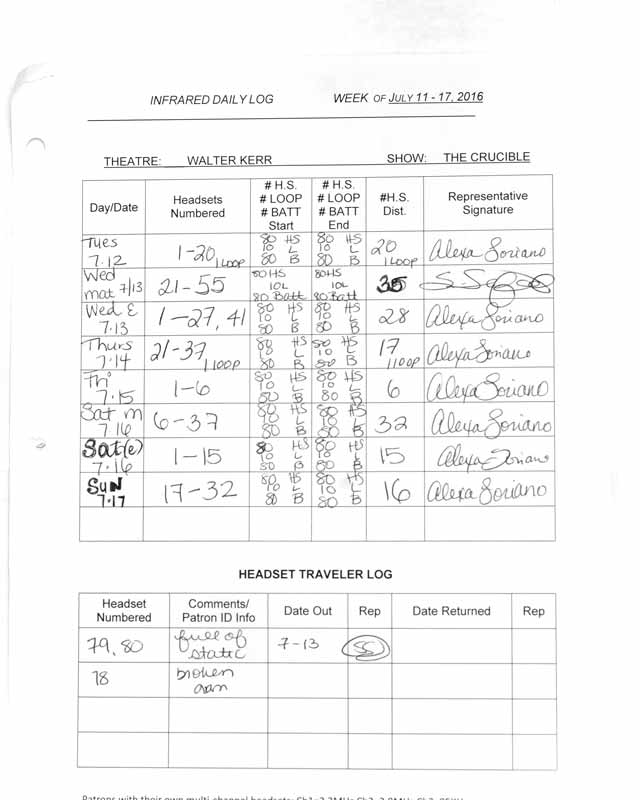 INFRARED DAILY LOG WEEK OF JULY 11 - 17, 2016
THEATRE: WALTER KERR SHOW: THE CRUCIBLE
Day/Date Headsets Numbered # H.S. # LOOP # BATT Start # H.S. # LOOP # BATT End #H.S. Dist. Representative Signature
Tues 7.12 1-20, 1 LOOP 80 HS 10 L 80 B 80 HS 10 L 80 B 20 1 LOOP Alexa Soriano
Wed mat 7/13 21-55 80 HS 10L 80 Batt 80HS 10L 80 Batt 35
Wed E 7.13 1-27, 41 80 HS 10 L 80 B 80 HS 10 L 80 B 28 Alexa Soriano
Thurs 7.14 21-37, 1 LOOP 80 HS 10 L 80 B 80 HS 10 L 80 B 17 1 LOOP Alexa Soriano
7.15 1-6 80 HS 10 L 80 B 80 HS 10 L 80 B 6 Alexa Soriano
Sat m 7.16 6-37 80 HS 10 L 80 B 80 HS 10 L 80 B 32 Alexa Soriano
Sat(e) 7.16 1-15 80 HS 10 L 80 B 80 HS 10 L 80 B 15 Alexa Soriano
Sun 7.17 17-32 80 HS 10 L 80 B 80 HS 10 L 80 B 16 Alexa Soriano
HEADSET TRAVELER LOG
Headset Numbered Comments/ Patron ID Info Date Out Rep Date Returned Rep
79, 80 full of static 7-13 SS
78 broken arm